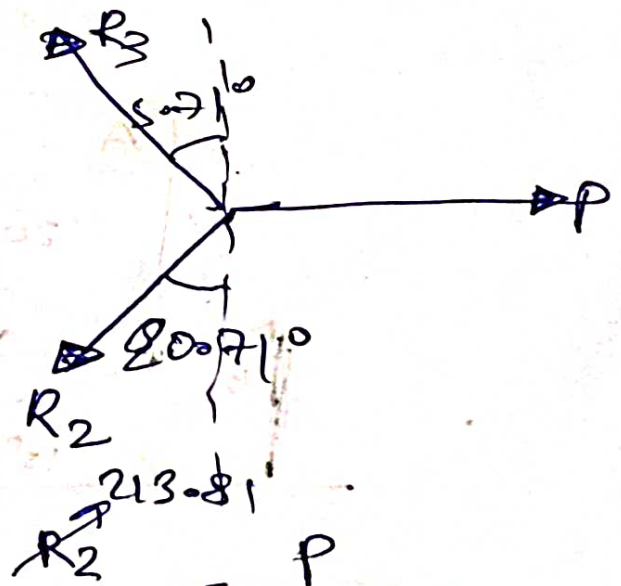 R3
5.71°
P
20.71°
R2
213.81
R2
P